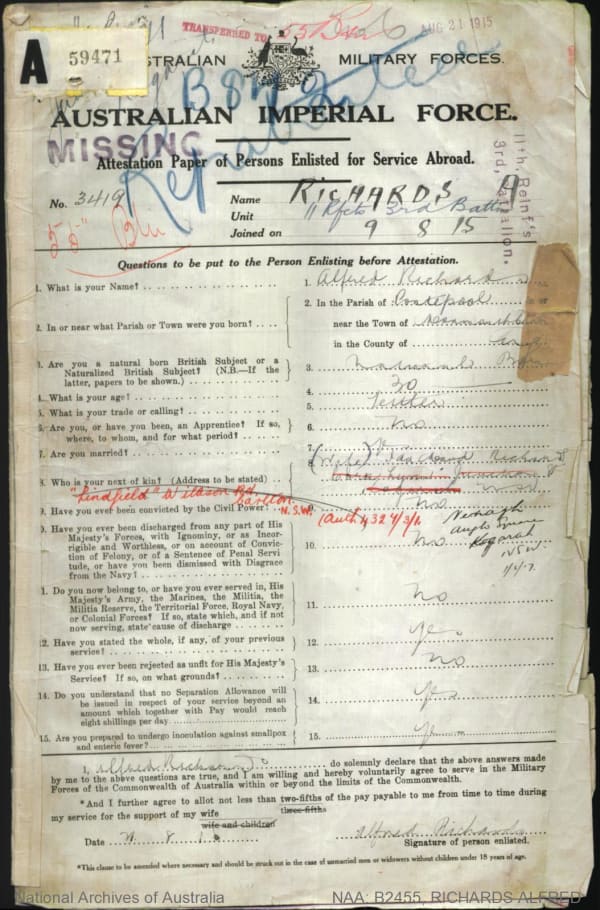 TRANSFERRED TO 55 Bn
AUG 21 1915
A 59471
AUSTRALIAN MILITARY FORCES.
AUSTRALIAN IMPERIAL FORCE.
MISSING
Attestation Paper of Persons Enlisted for Service Abroad.
11th Reinf's
3rd. Battalion.
No. 3419
Name RICHARDS A
Unit 11 Rfcts 3rd Battn
Joined on 9 8 15
55th Bn
Questions to be put to the Person Enlisting before Attestation.
1. What is your Name? 1. Alfred Richards
2. In or near what Parish or Town were you born? 2. In the Parish of
near the Town of
in the County of
3. Are you a natural born British Subject or a
Naturalized British Subject? (N.B.—If the
latter, papers to be shown.) 3.
4. What is your age? 4. 30
5. What is your trade or calling? 5.
6. Are you, or have you been, an Apprentice? If so,
where, to whom, and for what period? 6. No
7. Are you married? 7.
8. Who is your next of kin? (Address to be stated) 8. (Wife) Richards
"Lindfield" Willison Rd
Carlton
N.S.W.
9. Have you ever been convicted by the Civil Power? No
9. Have you ever been discharged from any part of His
Majesty's Forces, with Ignominy, or as Incor-
rigible and Worthless, or on account of Convic-
tion of Felony, or of a Sentence of Penal Servi-
tude, or have you been dismissed with Disgrace
from the Navy? 10. No
Kogarah
NSW
1. Do you now belong to, or have you ever served in, His
Majesty's Army, the Marines, the Militia, the
Militia Reserve, the Territorial Force, Royal Navy,
or Colonial Forces? If so, state which, and if not
now serving, state cause of discharge 11. No
12. Have you stated the whole, if any, of your previous
service? 12. Yes
13. Have you ever been rejected as unfit for His Majesty's
Service? If so, on what grounds? 13. No
14. Do you understand that no Separation Allowance will
be issued in respect of your service beyond an
amount which together with Pay would reach
eight shillings per day 14. Yes
15. Are you prepared to undergo inoculation against smallpox
and enteric fever? 15. Yes
I, Alfred Richards do solemnly declare that the above answers made
by me to the above questions are true, and I am willing and hereby voluntarily agree to serve in the Military
Forces of the Commonwealth of Australia within or beyond the limits of the Commonwealth.
*And I further agree to allot not less than two-fifths of the pay payable to me from time to time during
three-fifths
my service for the support of my wife
wife and children
Date 8
Alfred Richards
Signature of person enlisted.
*This clause to be amended where necessary and should be struck out in the case of unmarried men or widowers without children under 18 years of age.
National Archives of Australia NAA: B2455, RICHARDS ALFRED